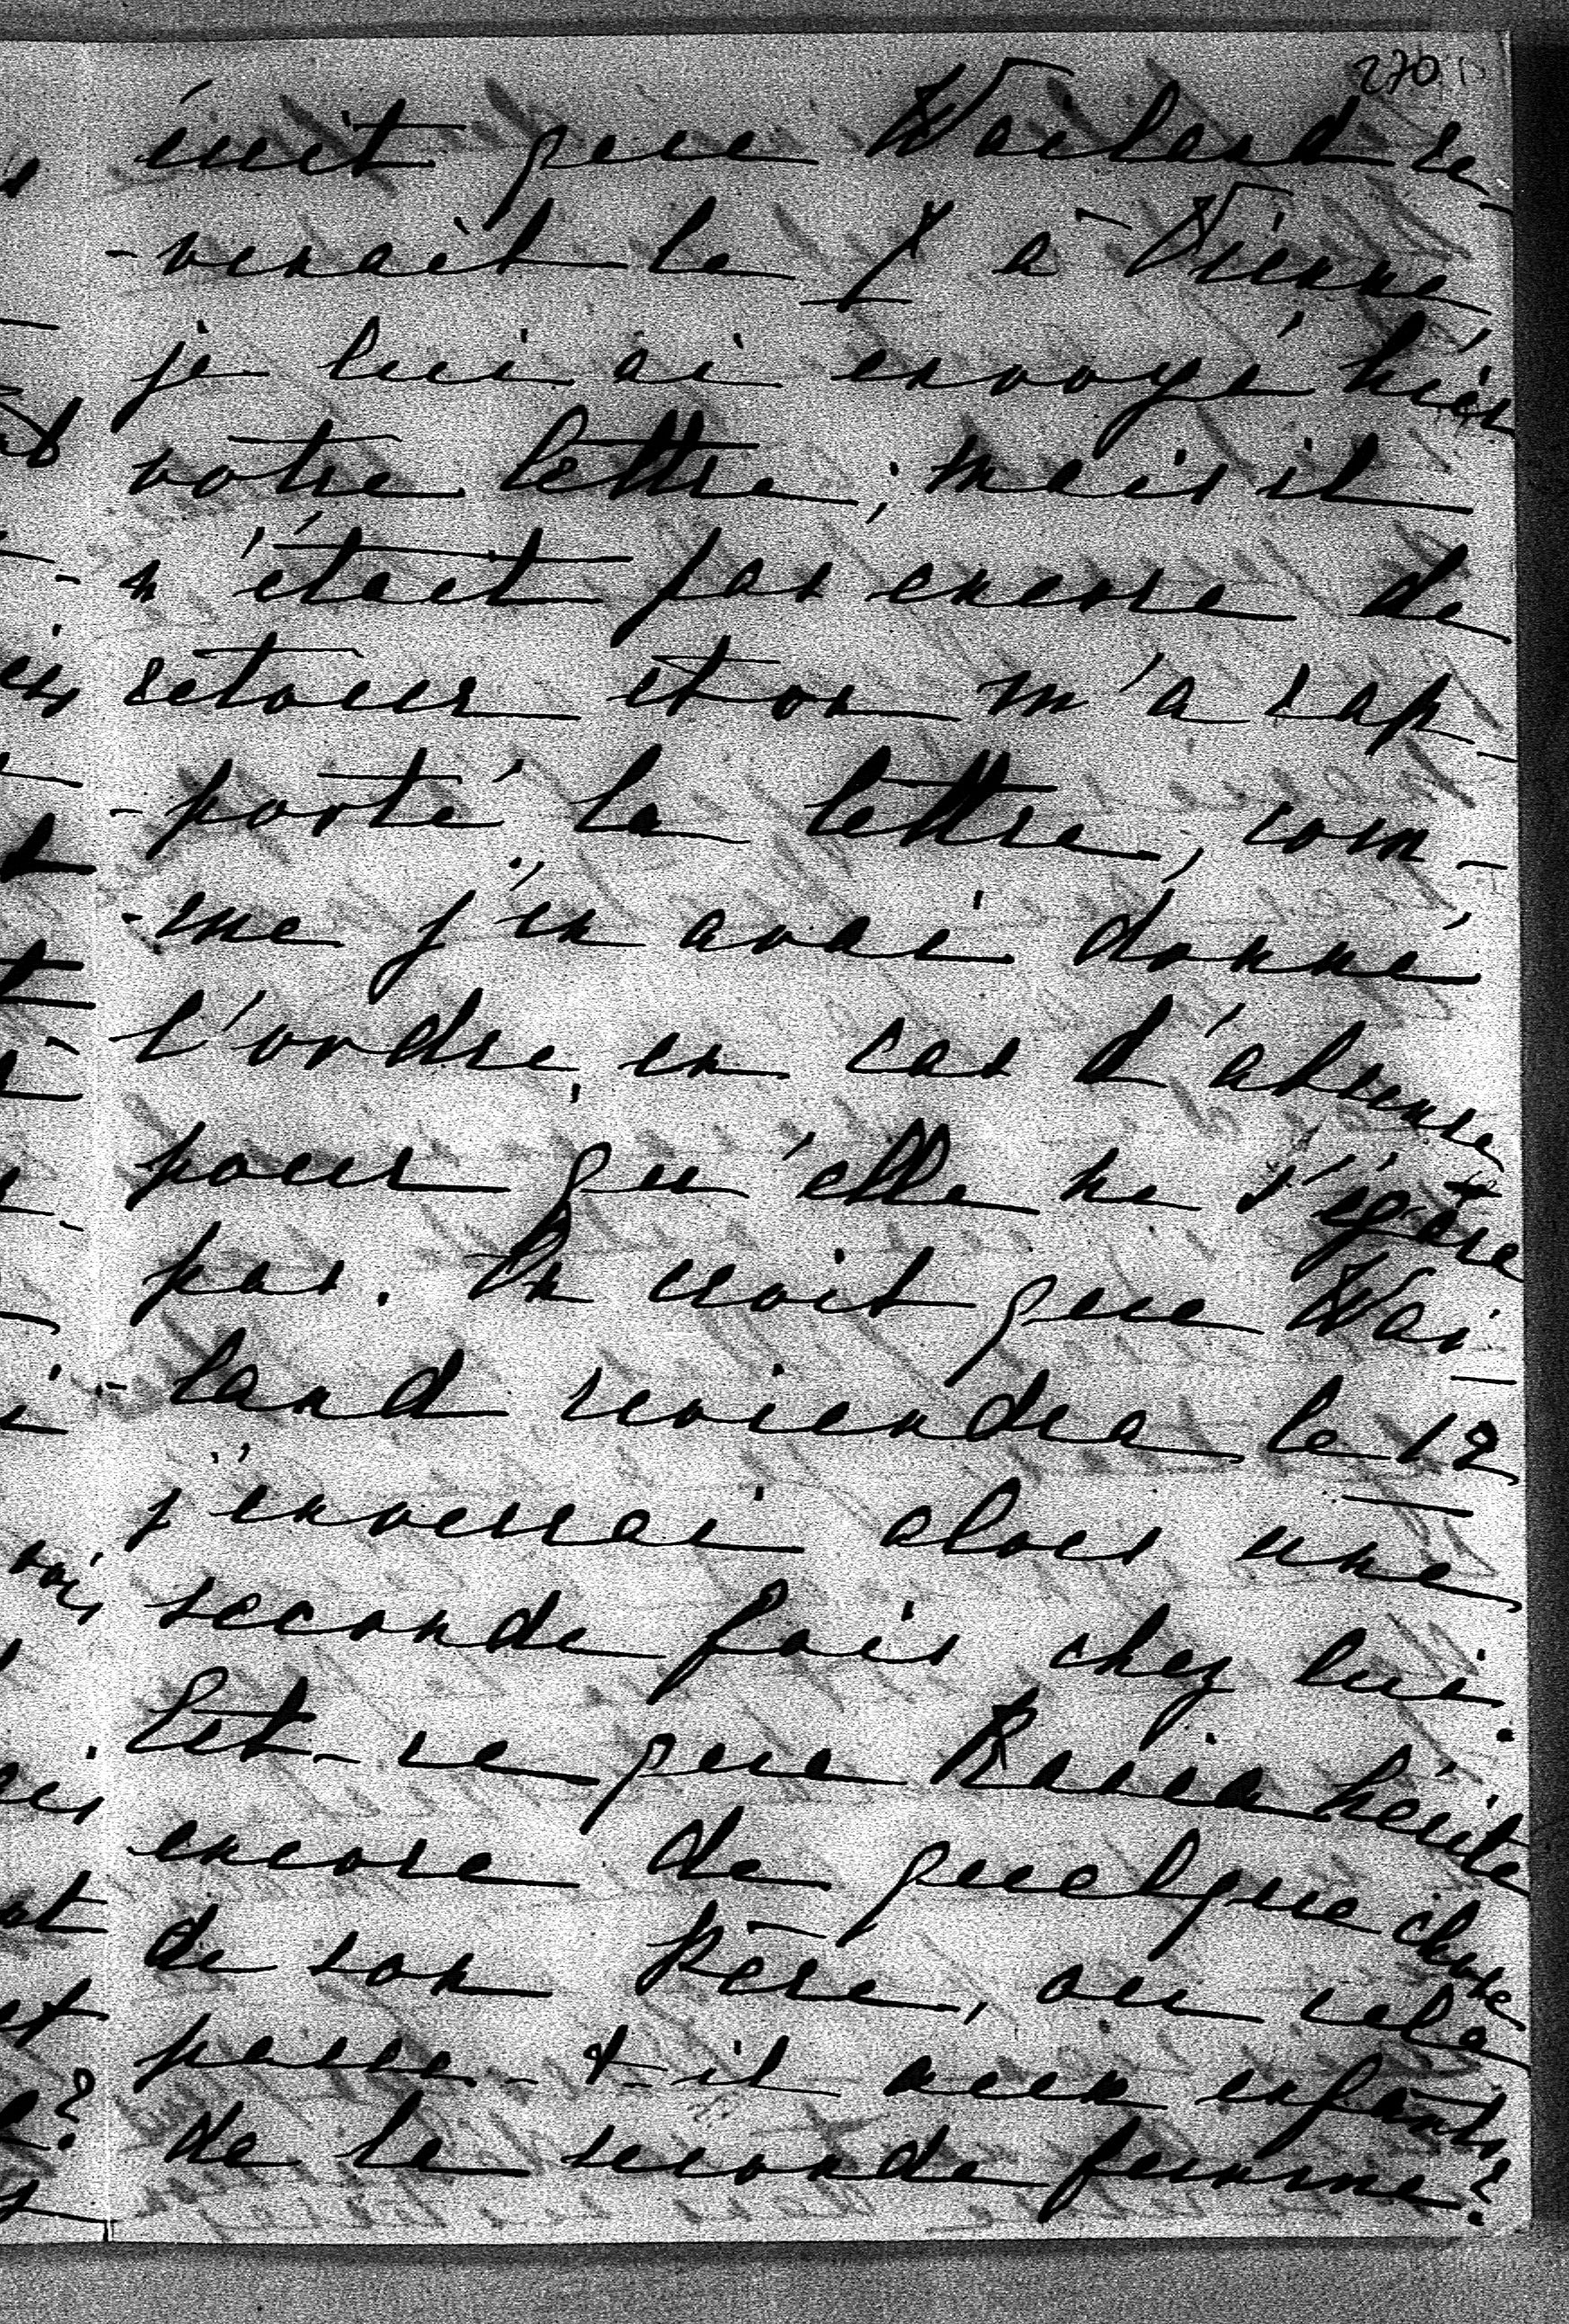 270
écrit que Wailand re-
-venait le 8 à Vienne
je lui ai envoyé hier
votre lettre; mais il
n'était pas encore de
retour et on m'a rap-
-porté la lettre, com-
-me j'en avai donné
l'ordre, en cas d'absence
pour qu'elle ne s'égare
pas. On croit que Wai-
-land reviendra le 12
j'enverrai alors une
seconde fois chez lui.
Est-ce que hérite
encore de quelque chose
de son Père, ou cela
passe-t-il aux enfants
de la seconde femme?